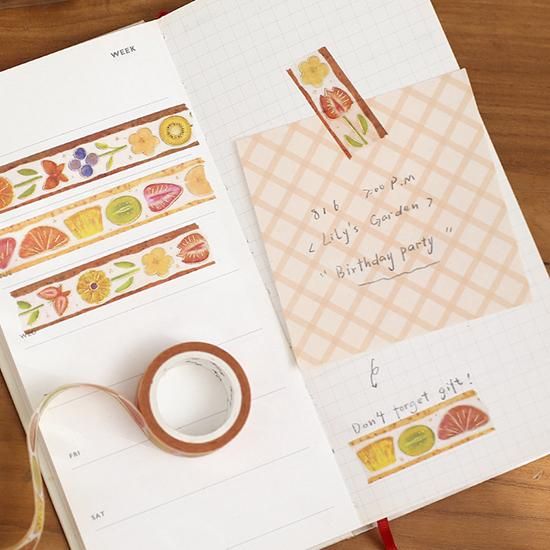 WEEK
WED
FRI
SAT
8/.6 7:00 P.M
< Lily's Garden >
" Birthday party "
Don't forget gift!